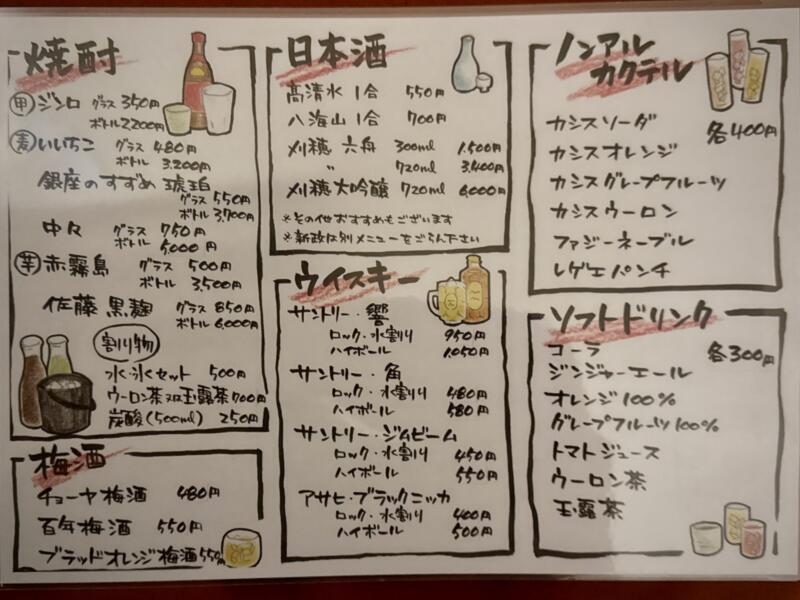 焼酎
甲 ジンロ グラス 350円
ボトル 2,200円
麦 いいちこ グラス 480円
ボトル 3,200円
銀座のすずめ 琥珀
グラス 550円
ボトル 3,700円
中々 グラス 750円
ボトル 5,000円
芋 赤霧島 グラス 500円
ボトル 3,500円
佐藤 黒麹 グラス 850円
ボトル 6,000円
割り物
水・氷セット 500円
ウーロン茶 又は 玉露茶 700円
炭酸(500ml) 250円
梅酒
チョーヤ梅酒 480円
百年梅酒 550円
ブラッドオレンジ梅酒 550円
日本酒
高清水 1合 550円
八海山 1合 700円
刈穂 六舟 300ml 1,500円
〃 720ml 3,400円
刈穂 大吟醸 720ml 6,000円
※その他おすすめもございます
※新政は別メニューをごらん下さい
ウイスキー
サントリー・響
ロック・水割り 950円
ハイボール 1,050円
サントリー・角
ロック・水割り 480円
ハイボール 580円
サントリー・ジムビーム
ロック・水割り 450円
ハイボール 550円
アサヒ・ブラックニッカ
ロック・水割り 400円
ハイボール 500円
ノンアル
カクテル
カシスソーダ 各400円
カシスオレンジ
カシスグレープフルーツ
カシスウーロン
ファジーネーブル
レゲエパンチ
ソフトドリンク
コーラ 各300円
ジンジャーエール
オレンジ100%
グレープフルーツ100%
トマトジュース
ウーロン茶
玉露茶